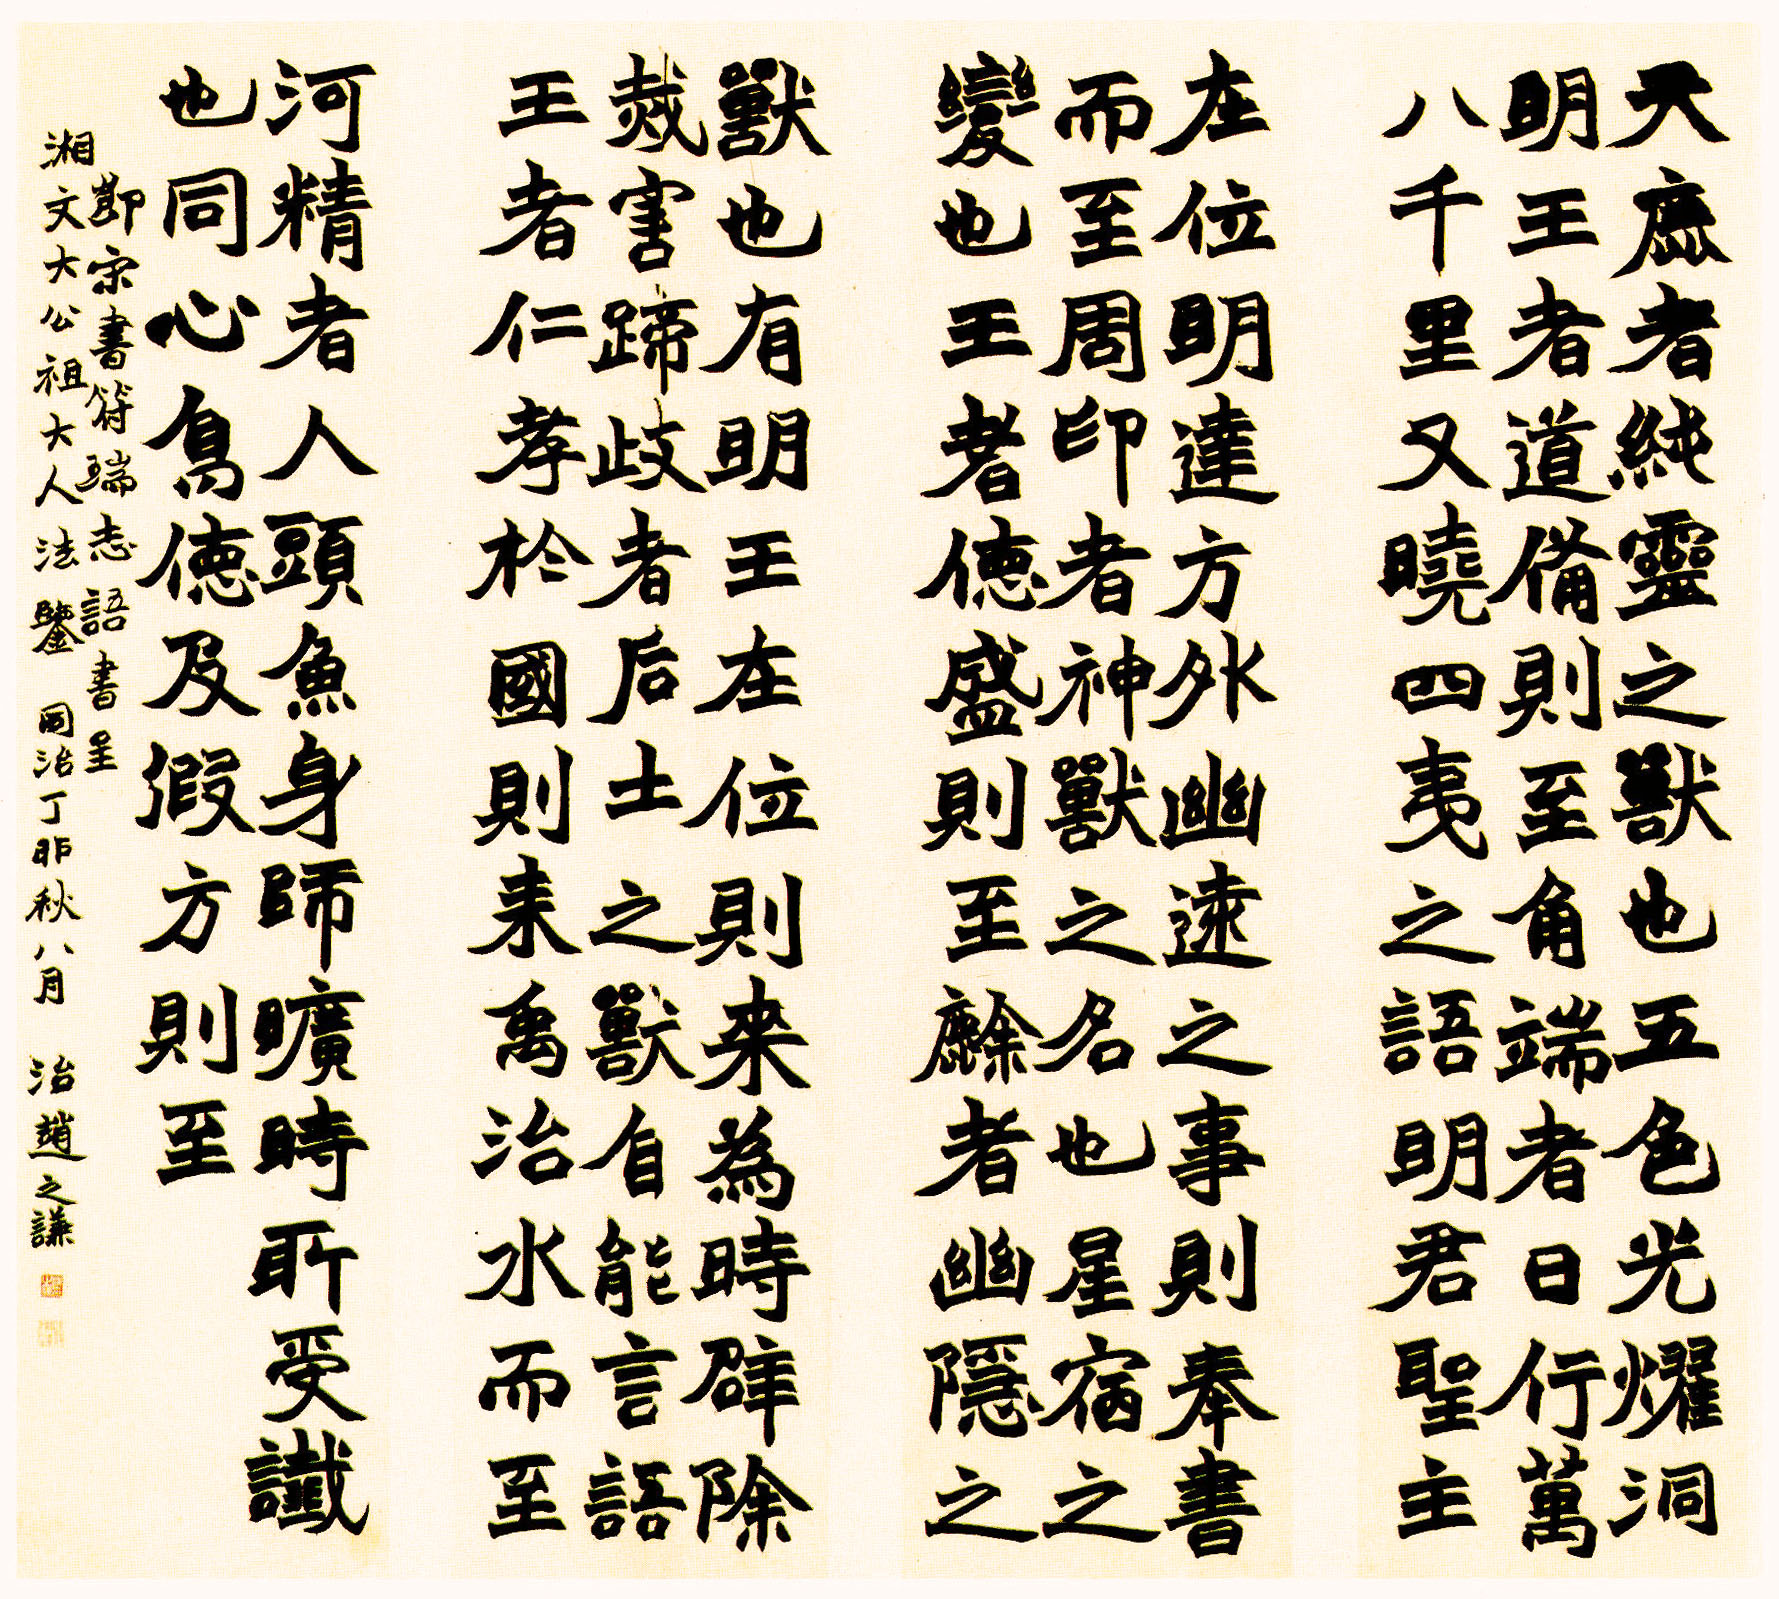 天鹿者純靈之獸也五色光燿洞
明王者道備則至角端者日行萬
八千里又曉四夷之語明君聖主
在位明達方外幽遠之事則奉書
而至周印者神獸之名也星宿之
變也王者德盛則至䴰者幽隱之
獸也有明王在位則來為時辟除
烖害蹄歧者后土之獸自能言語
王者仁孝於國則来禹治水而至
河精者人頭魚身師曠時所受讖
也同心鳥德及假方則至
節宋書符瑞志語書呈
湘文大公祖大人法鑒 同治丁卯秋八月 治趙之謙